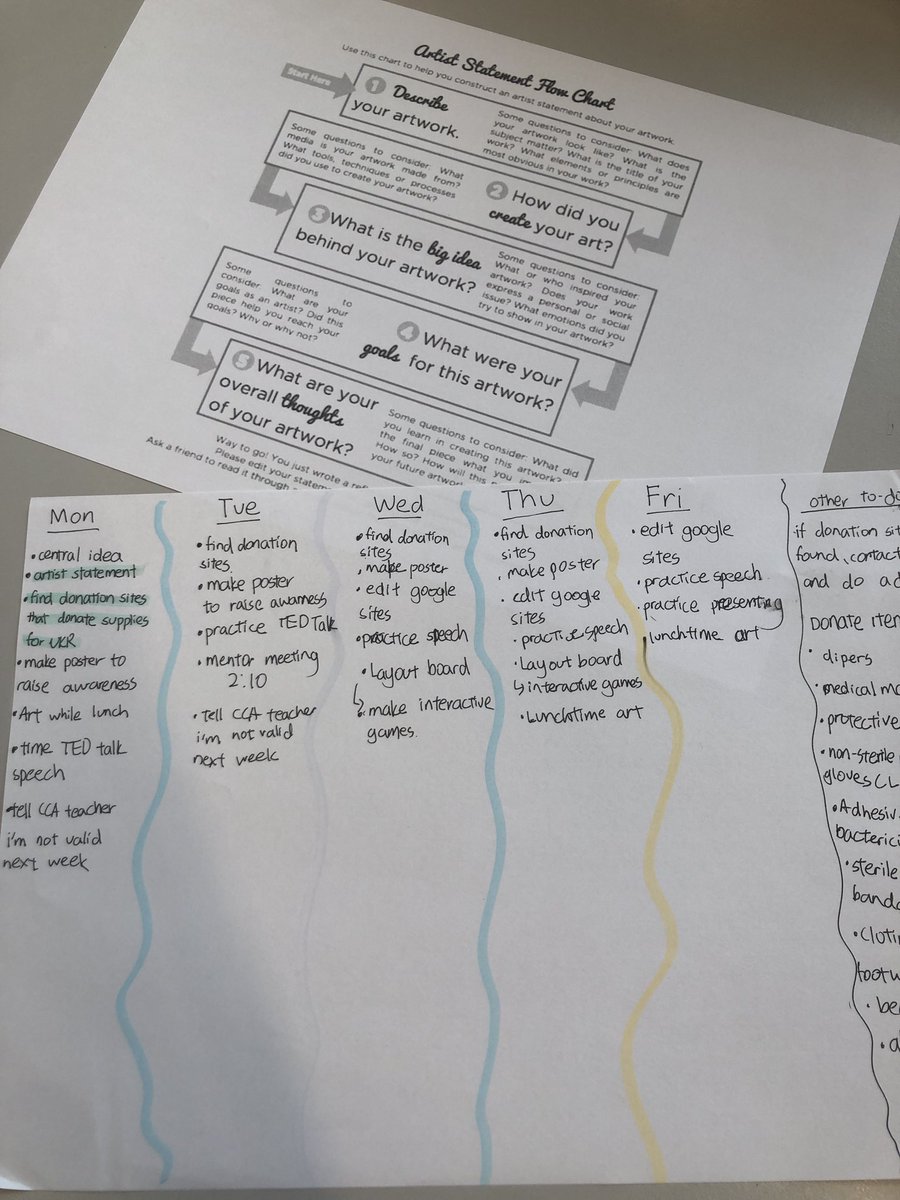 Artist Statement Flow Chart
Use this chart to help you construct an artist statement about your artwork.
Start Here
1 Describe
your artwork.
Some questions to consider: What does
your artwork look like? What is the
subject matter? What is the title of your
work? What elements or principles are
most obvious in your work?
Some questions to consider: What
media is your artwork made from?
What tools, techniques or processes
did you use to create your artwork?
2 How did you
create your art?
3 What is the big idea
behind your artwork?
Some questions to consider:
What or who inspired your
artwork? Does your work
express a personal or social
issue? What emotions did you
try to show in your artwork?
Some questions to
consider: What are your
goals as an artist? Did this
piece help you reach your
goals? Why or why not?
4 What were your
goals for this artwork?
5 What are your
overall thoughts
of your artwork?
Some questions to consider: What did
you learn in creating this artwork?
the final piece what you
How so? How will this
your future
Way to go! You just wrote a
Please edit your
Ask a friend to read it through
Mon
• central idea
• artist statement
• find donation sites
that donate supplies
for UKR
• make poster to
raise awareness
• Art while lunch
• time TED talk
speech
• tell CCA teacher
i'm not valid
next week
Tue
• find donation
sites.
• make poster
to raise awarness
• practice TED Talk
• mentor meeting
2:10
• Tell CCA teacher
i'm not valid
next week
Wed
• find donation
sites
• make poster
• edit google
sites
• practice speech
• Layout board
↳ make interactive
games.
Thu
• find donation
sites
• make poster
• edit google
sites
• practice speech
• Layout board
↳ interactive games
• Lunchtime art
Fri
• edit google
sites
• practice speech
• practice presenting
• lunchtime art
other to-do
if donation
found, contact
and do
Donate
• dipers
• medical
• protective
• non-sterile
gloves
• Adhesiv
bacterici
• sterile
•